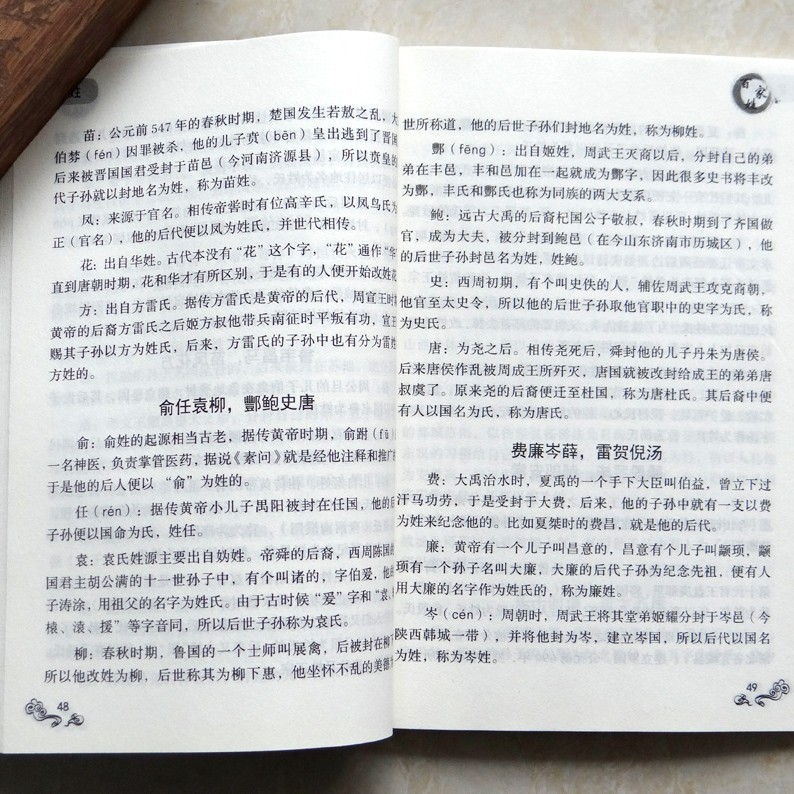 姓
苗：公元前547年的春秋时期，楚国发生若敖之乱，大
伯棼（fén）因罪被杀，他的儿子贲（bēn）皇出逃到了晋国
后来被晋国国君受封于苗邑（今河南济源县），所以贲皇的
代子孙就以封地名为姓，称为苗姓。
风：来源于官名。相传帝喾时有位高辛氏，以凤鸟氏为
正（官名），他的后代便以风为姓氏，并世代相传。
花：出自华姓。古代本没有“花”这个字，“花”通作“华
直到唐朝时期，花和华才有所区别，于是有的人便开始改姓花
方：出自方雷氏。据传方雷氏是黄帝的后代，周宣王时
黄帝的后裔方雷氏之后姬方叔他带兵南征时平叛有功，宣王
赐其子孙以方为姓氏，后来，方雷氏的子孙中也有分为雷姓
方姓的。
俞任袁柳，酆鲍史唐
俞：俞姓的起源相当古老，据传黄帝时期，俞跗（fū）
一名神医，负责掌管医药，据说《素问》就是经他注释和推广
于是他的后人便以“俞”为姓的。
任（rén）：据传黄帝小儿子禺阳被封在任国，他的后
子孙便以国命为氏，姓任。
袁：袁氏姓源主要出自妫姓。帝舜的后裔，西周陈国的
国君主胡公满的十一世孙子中，有个叫诸的，字伯爰，他的
子涛涂，用祖父的名字为姓氏。由于古时候“爰”字和“袁、
榬、滚、援”等字音同，所以后世子孙称为袁氏。
柳：春秋时期，鲁国的一个士师叫展禽，后被封在柳下
所以他改姓为柳，后世称其为柳下惠，他坐怀不乱的美德
48
百家姓
世所称道，他的后世子孙们封地名为姓，称为柳姓。
酆（fēng）：出自姬姓，周武王灭商以后，分封自己的弟
弟在丰邑，丰和邑加在一起就成为酆字，因此很多史书将丰改
为酆，丰氏和酆氏也称为同族的两大支系。
鲍：远古大禹的后裔杞国公子敬叔，春秋时期到了齐国做
官，成为大夫，被分封到鲍邑（在今山东济南市历城区），他
的后世子孙封邑名为姓，姓鲍。
史：西周初期，有个叫史佚的人，辅佐周武王攻克商朝，
他官至太史令，所以他的后世子孙取他官职中的史字为氏，称
为史氏。
唐：为尧之后。相传尧死后，舜封他的儿子丹朱为唐侯。
后来唐侯作乱被周成王所歼灭，唐国就被改封给成王的弟弟唐
叔虞了。原来尧的后裔便迁至杜国，称为唐杜氏。其后裔中便
有人以国名为氏，称为唐氏。
费廉岑薛，雷贺倪汤
费：大禹治水时，夏禹的一个手下大臣叫伯益，曾立下过
汗马功劳，于是受封于大费，后来，他的子孙中就有一支以费
为姓来纪念他的。比如夏桀时的费昌，就是他的后代。
廉：黄帝有一个儿子叫昌意的，昌意有个儿子叫颛顼，颛
顼有一个孙子名叫大廉，大廉的后代子孙为纪念先祖，便有人
用大廉的名字作为姓氏的，称为廉姓。
岑（cén）：周朝时，周武王将其堂弟姬耀分封于岑邑（今
陕西韩城一带），并将他封为岑，建立岑国，所以后代以国名
为姓，称为岑姓。
49